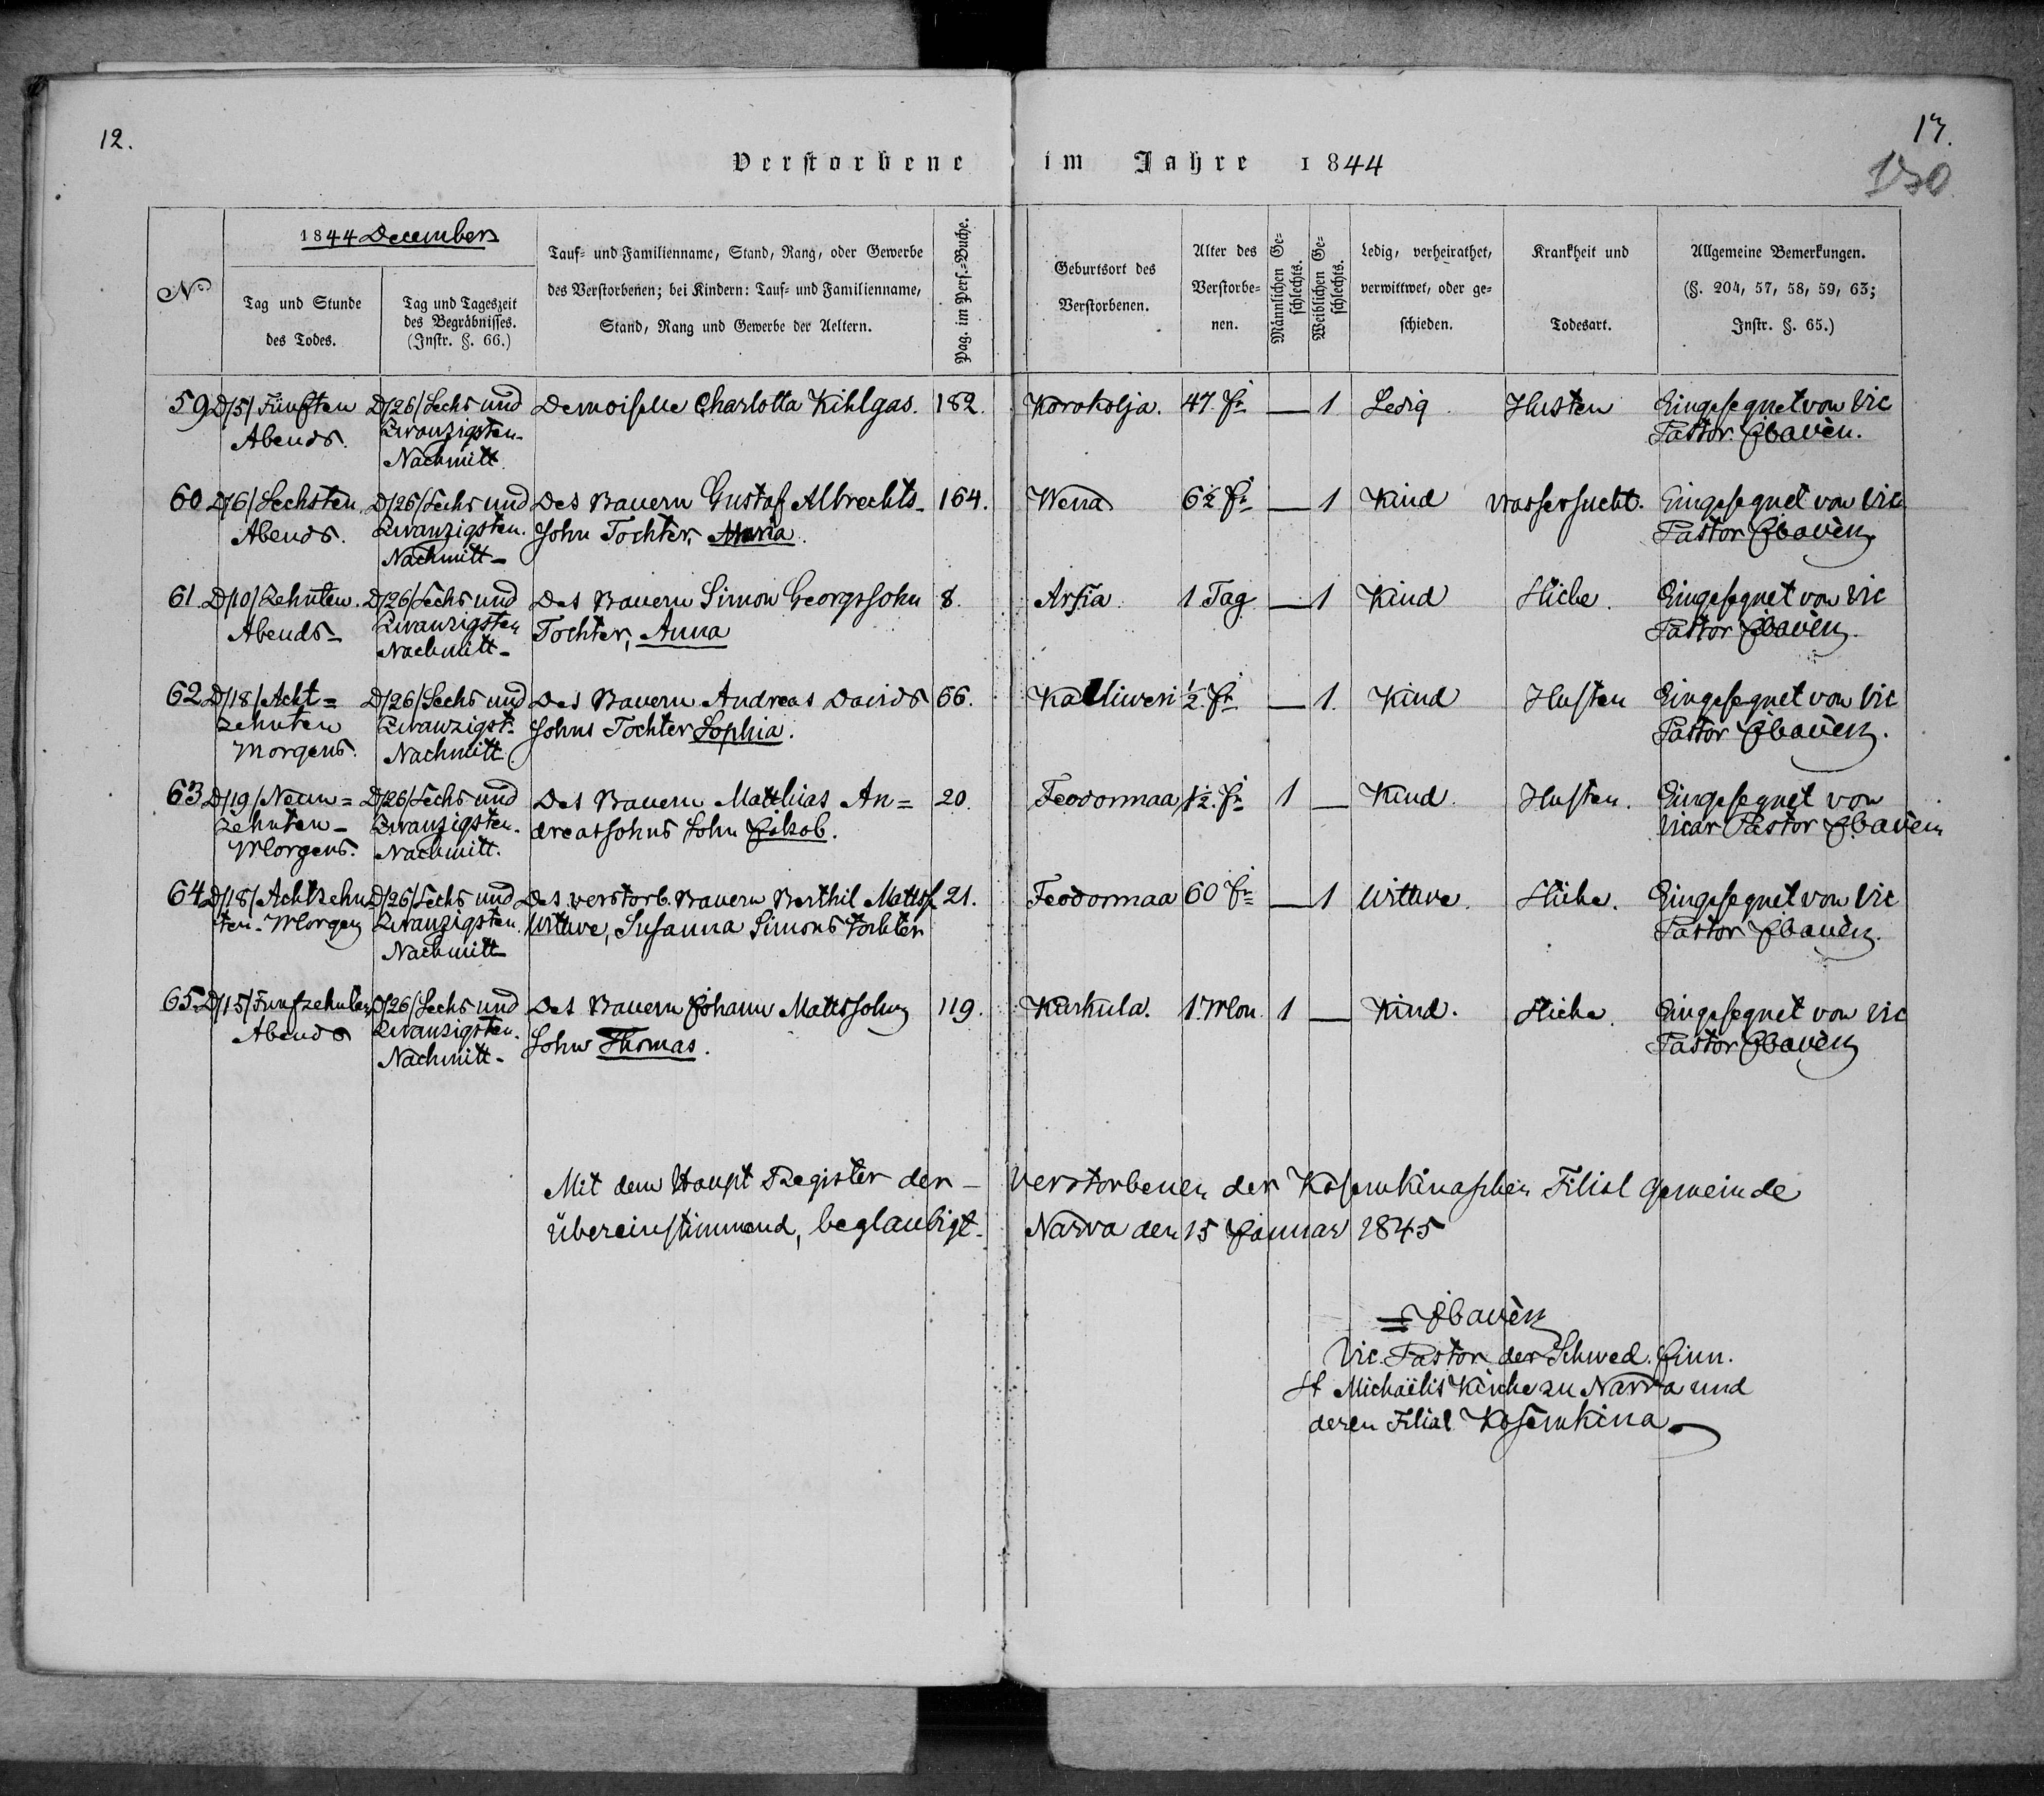 12.
17.
Verstorbene im Jahre 1844
130
No
1844 December
Tag und Stunde
des Todes.
Tag und Tageszeit
des Begräbnisses.
(Instr. §. 66.)
Tauf= und Familienname, Stand, Rang, oder Gewerbe
des Verstorbenen; bei Kindern: Tauf= und Familienname,
Stand, Rang und Gewerbe der Aeltern.
Pag. im Pers.=Buche.
Geburtsort des
Verstorbenen.
Alter des
Verstorbe-
nen.
Männlichen Ge-
schlechts.
Weiblichen Ge-
schlechts.
Ledig, verheirathet,
verwittwet, oder ge-
schieden.
Krankheit und
Todesart.
Allgemeine Bemerkungen.
(§. 204, 57, 58, 59, 63;
Instr. §. 65.)
59 D/5/ Fünften D/26/ Sechs und Demoiselle Charlotta Kihlgas. 182. Korokolja. 47. Jr. — 1 Ledig Husten Eingesegnet von Vic
Abends. Zwanzigsten Pastor
Nachmitt.
60 D/6/ Sechsten D/26/ Sechs und Des Bauern Gustaf Albrechts- 164. Wena 6½ Jr — 1 Kind Wassersucht. Eingesegnet von Vic
Abends. Zwanzigsten. Sohn Tochter, Maria. Pastor
Nachmitt-
61. D/10/ Zehnten. D/26/ Sechs und Des Bauern Simon Georgssohn 8. Arsia 1 Tag — 1 Kind Hicke. Eingesegnet von Vic
Abends- Zwanzigsten Tochter, Anna Pastor
Nachmitt-
62 D/18/ Acht= D/26/ Sechs und Des Bauern Andreas Davids 66. Kalliweri ½. Jr — 1. Kind Husten Eingesegnet von Vic
zehnten Zwanzigst- Sohns Tochter Sophia. Pastor
Morgens. Nachmitt
63 D/19/ Neun= D/26/ Sechs und Des Bauern Matthias An= 20. Feodormaa 1½. Jr 1 — Kind. Husten. Eingesegnet von
zehnten- Zwanzigsten. dreassohns Sohn Jakob. Vicar Pastor
Morgens. Nachmitt.
64 D/18/ Achtzehn D/26/ Sechs und Des verstorb. Bauern Berthil Mattss 21. Feodormaa 60 Jr — 1 Wittwe. Hicke. Eingesegnet von Vic
ten- Morgen Zwanzigsten. Wittwe, Susanna Simons tochter Pastor
Nachmitt
65. D/15/ Funfzehnten D/26/ Sechs und Des Bauern Johann Mattssohn 119. Kurkula. 1. Mon. 1 — Kind. Hicke. Eingesegnet von Vic
Abends Zwanzigsten. Sohn Thomas. Pastor
Nachmitt-
Mit dem Haupt Register der - Verstorbenen der Kosemkinaschen Filial Gemeinde
übereinstimmend, beglaubigt- Narva den 15 Januar 1845
Vic. Pastor der Schwed. Finn.
St Michaëlis Kirche zu Narva und
deren Filial Kosemkina